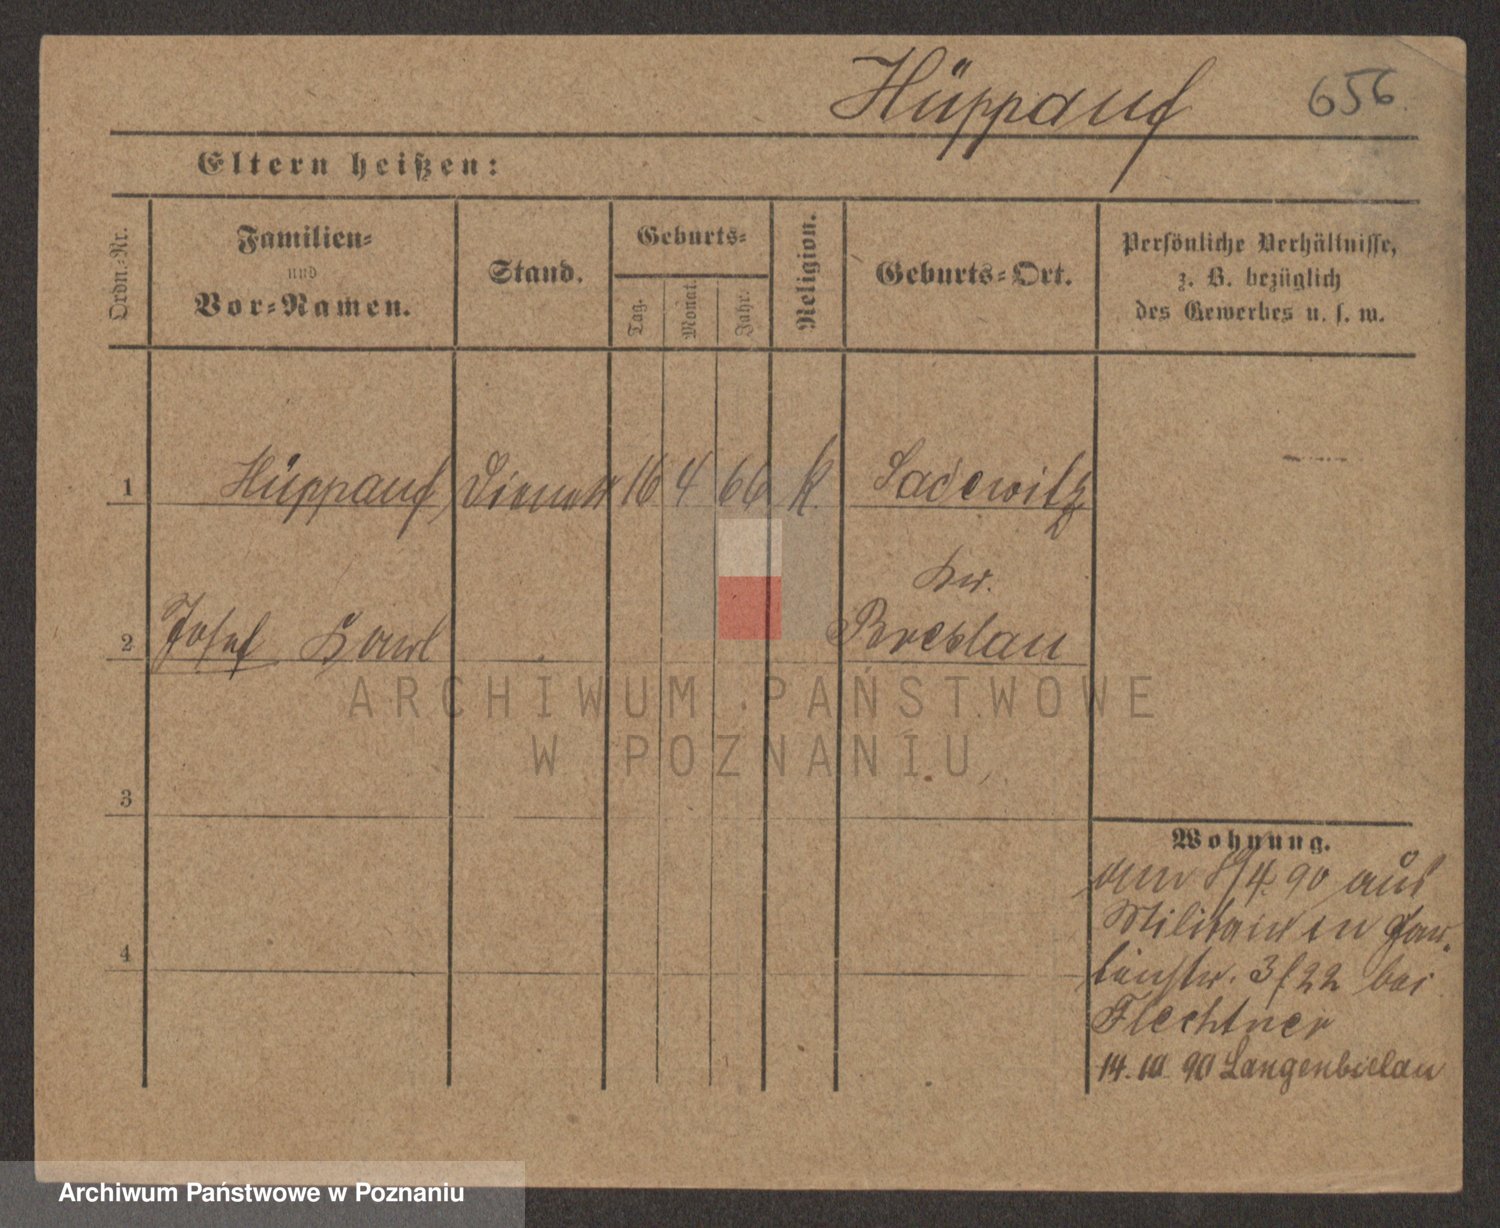 Hüppauf 656
Eltern heißen:
Ordn.-Nr.
Familien-
und
Vor-Namen.
Stand.
Geburts-
Tag.
Monat.
Jahr.
Religion.
Geburts-Ort.
Persönliche Verhältnisse,
z. B. bezüglich
des Gewerbes u. s. w.
1 Hüppauf, 16 4 66 K. Sadewitz
Kr.
2 Josef Karl Breslau
3
4
Wohnung.
4.90 aus
Militair in
3 f 22 bei
Flechtner
14. 10. 90 Langenbielau
ARCHIWUM PAŃSTWOWE
W POZNANIU
Archiwum Państwowe w Poznaniu